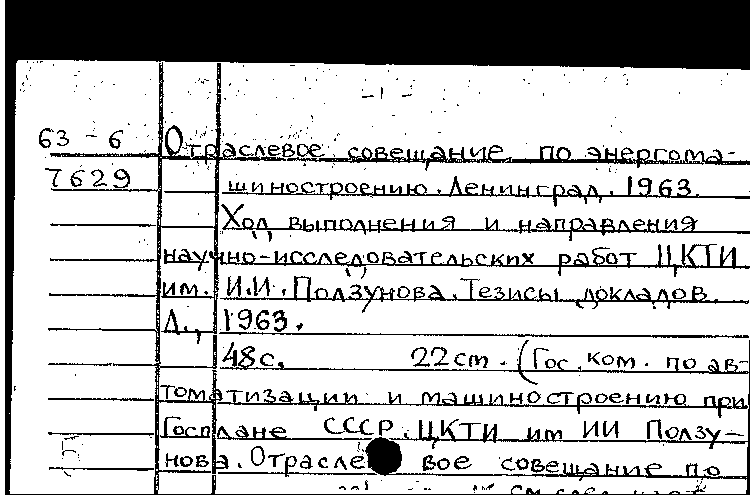 - 1 -
63 - 6 Отраслевое совещание по энергома-
7629 шиностроению. Ленинград. 1963.
Ход выполнения и направления
научно-исследовательских работ ЦКТИ
им. И.И. Ползунова. Тезисы докладов.
Л., 1963.
48с. 22 см. (Гос. ком. по ав-
томатизации и машиностроению при
Госплане СССР. ЦКТИ им ИИ Ползу-
нова. Отрасле вое совещание по
см. след. карт.